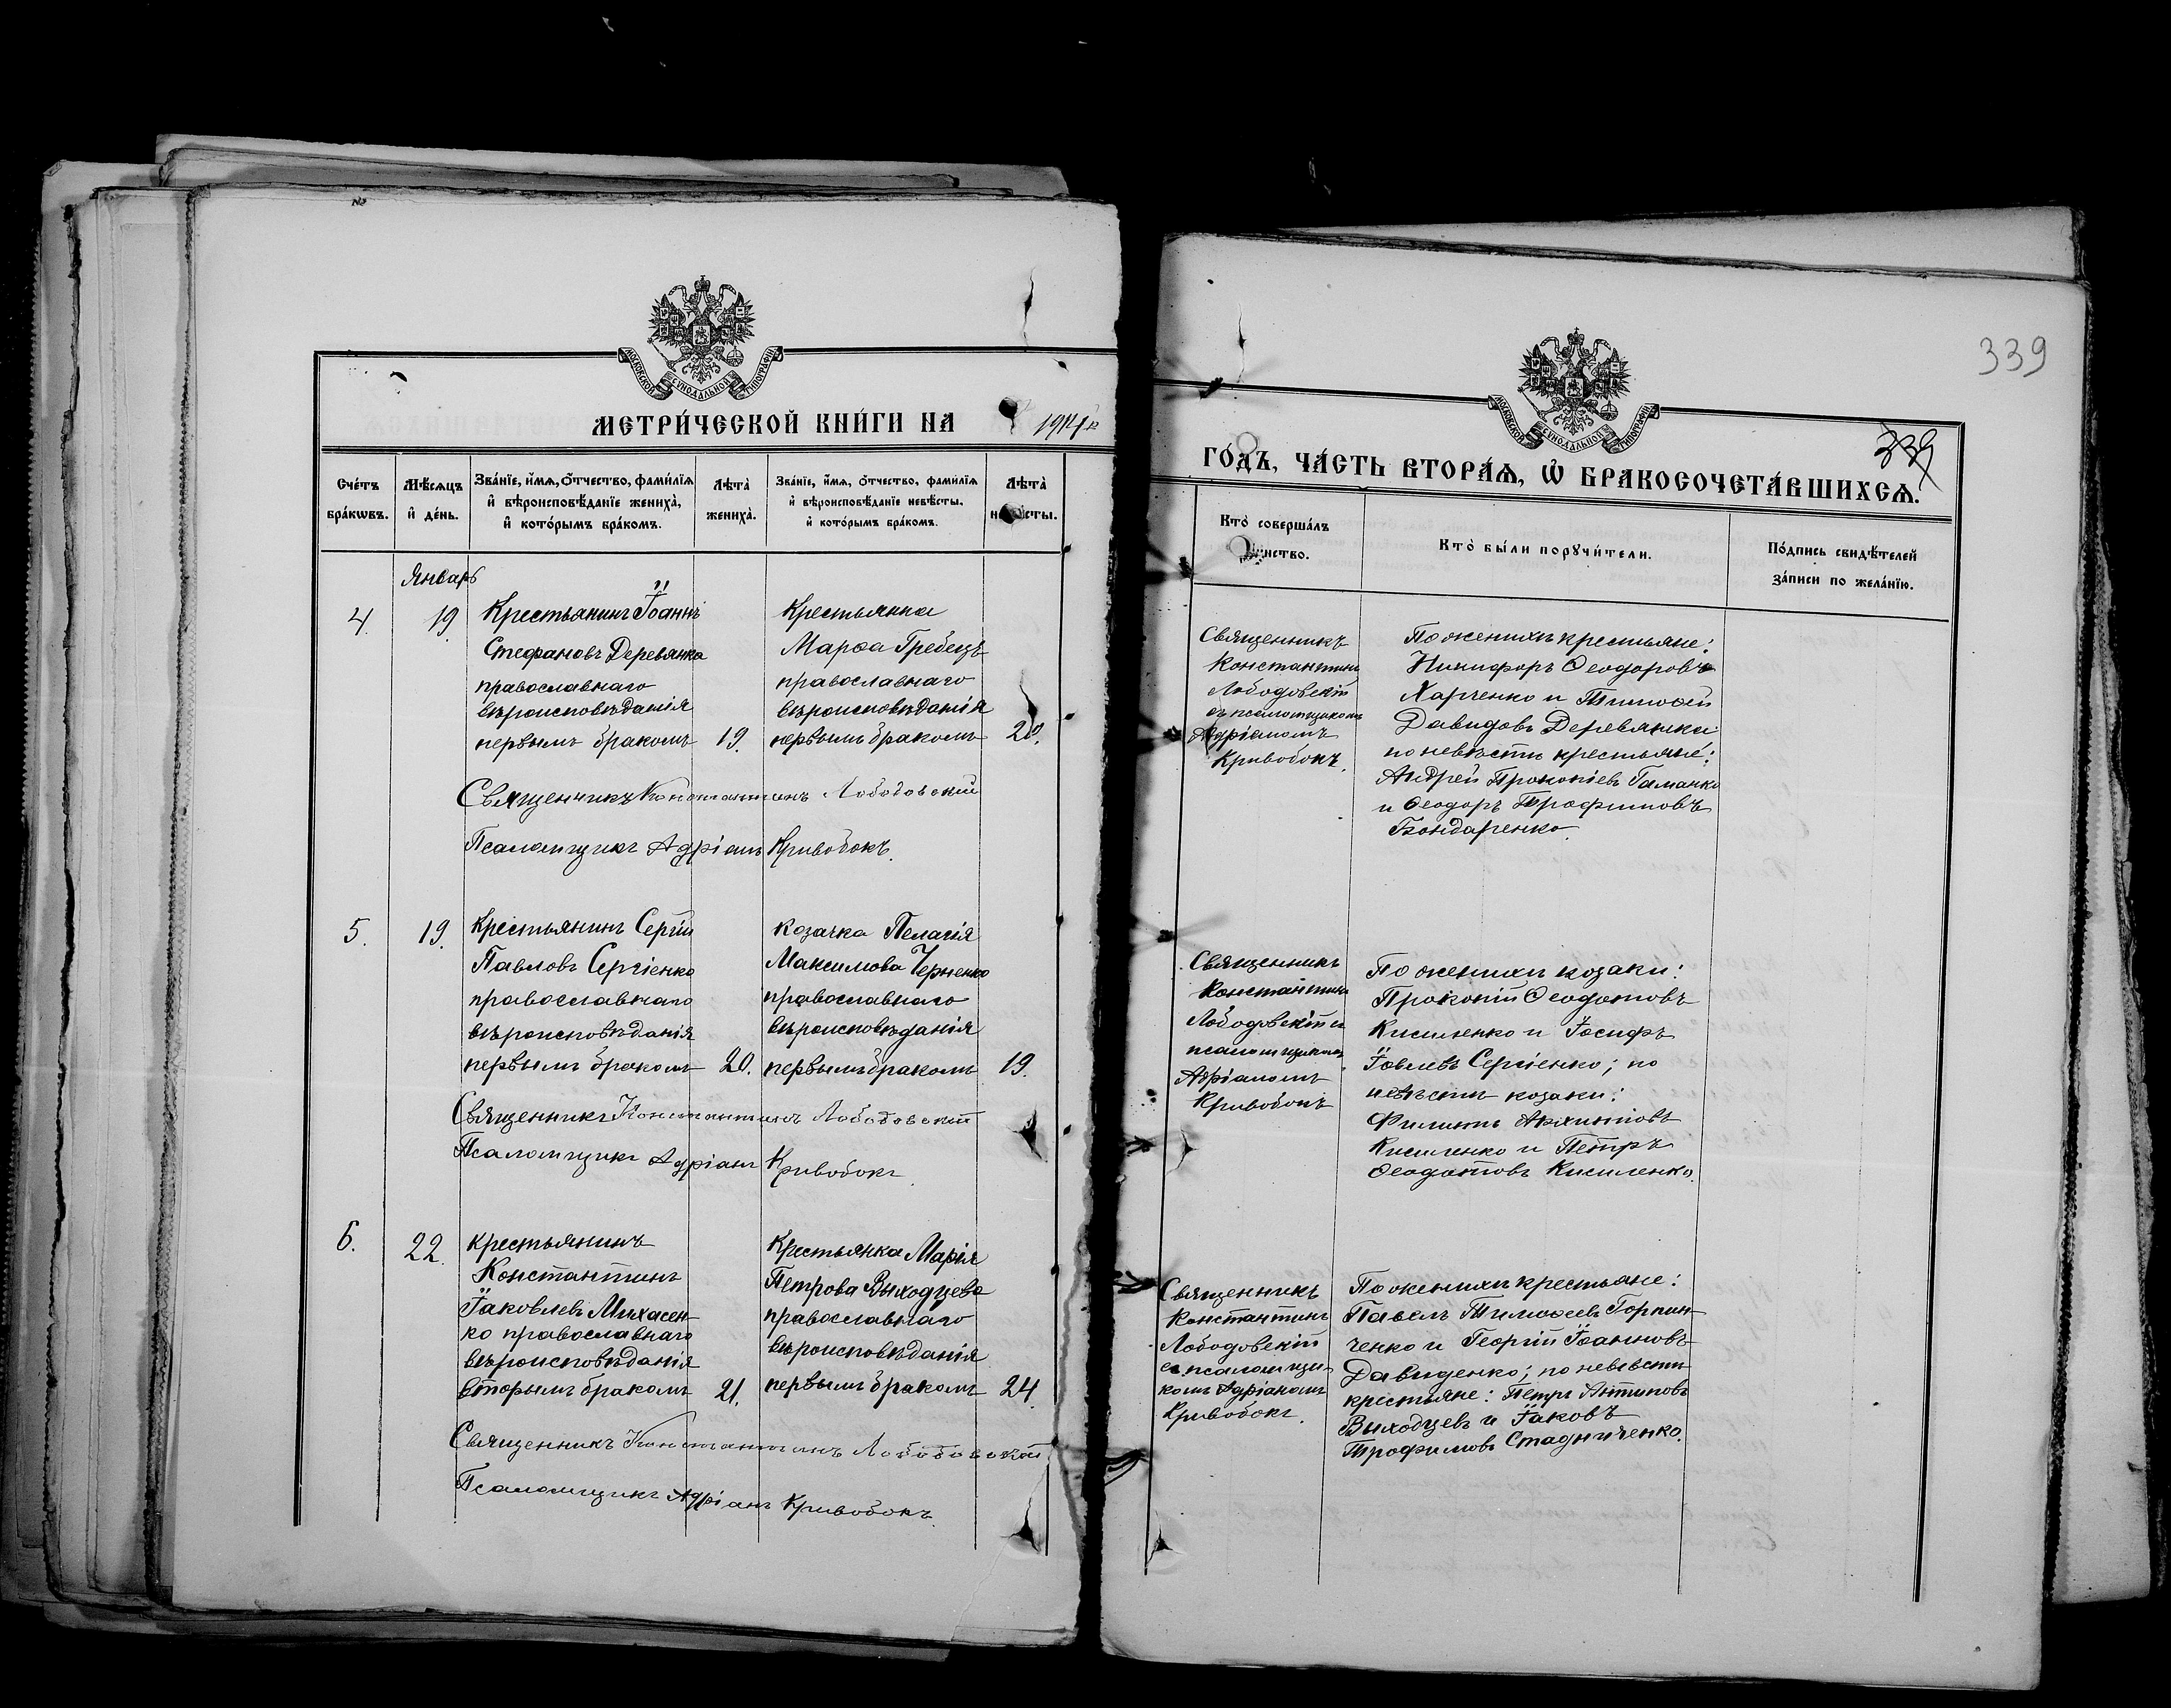 МОСКОВСКОЙ СѴНОДАЛЬНОЙ ТИПОГРАФІИ
МЕТРИ́ЧЕСКОЙ КНИ́ГИ НА 1914
Сче́тъ бра́кωвъ.
Мѣ́сяцъ и҆ де́нь.
Зва́нїе, и҆́мѧ, ѻ҆́тчество, фами́лїѧ и҆ вѣроисповѣ́данїе жениха̀, и҆ кото́рымъ бра́комъ.
Лѣ́та̀ жениха̀.
Зва́нїе, и҆́мѧ, ѻ҆́тчество, фами́лїѧ и҆ вѣроисповѣ́данїе невѣ́сты, и҆ кото́рымъ бра́комъ.
Лѣ́та̀
Январь
4.
19
Крестьянинъ Іоаннъ
Стефановъ Деревянка
православнаго
вѣроисповѣданія
первымъ бракомъ
19.
Крестьянка
Марѳа Гребецъ
православнаго
вѣроисповѣданія
первымъ бракомъ
20.
Священникъ Константинъ Лободовскій
Псаломщикъ Адріанъ Кривобокъ.
5.
19.
Крестьянинъ Сергій
Павловъ Сергіенко
православнаго
вѣроисповѣданія
первымъ бракомъ
20.
козачка Пелагія
Максимова Черненко
православнаго
вѣроисповѣданія
первымъ бракомъ
19.
Священникъ Константинъ Лободовскій
Псаломщикъ Адріанъ Кривобокъ.
6.
22.
крестьянинъ
Константинъ
Іаковлевъ Михасен-
ко православнаго
вѣроисповѣданія
вторымъ бракомъ
21.
Крестьянка Марія
Петрова Выходцева
православнаго
вѣроисповѣданія
первымъ бракомъ
24.
Священникъ Константинъ Лободовскій
Псаломщикъ Адріанъ Кривобокъ.
339
МОСКОВСКОЙ СѴНОДАЛЬНОЙ ТИПОГРАФІИ
339
ГО́ДЪ, ЧА́СТЬ ВТОРА́Ѧ, Ѽ БРАКОСОЧЕТА́ВШИХСѦ.
Кто̀ соверша́лъ
Кто̀ бы́ли порꙋчи́тели.
По́дпись свидѣ́телей за́писи по жела́нїю.
Священникъ
Константинъ
Лободовскій
съ псаломщикомъ
Адріаномъ
Кривобокъ.
По женихѣ крестьяне:
Никифоръ Ѳеодоровъ
Харченко и Тимоѳей
Давидовъ Деревянка
по невѣстѣ крестьяне:
Андрей Прокопіевъ Гаманко
и Ѳеодоръ Трофимовъ
Бондаренко.
Священникъ
Константинъ
Лободовскій съ
псаломщикомъ
Адріаномъ
Кривобокъ
По женихѣ козаки:
Прокопій Ѳеодотовъ
Кисиленко и Іосифъ
Іовлевъ Сергіенко; по
невѣстѣ козаки:
Филиппъ Архиповъ
Кисиленко и Петръ
Ѳеодотовъ Кисиленко.
Священникъ
Константинъ
Лободовскій
съ псаломщи-
комъ Адріаномъ
Кривобокъ.
По женихѣ крестьяне:
Павелъ Тимоѳеевъ Горпин-
ченко и Георгій Іоанновъ
Давиденко; по невѣстѣ
крестьяне: Петръ Антиповъ
Выходцевъ и Іаковъ
Трофимовъ Стадниченко.